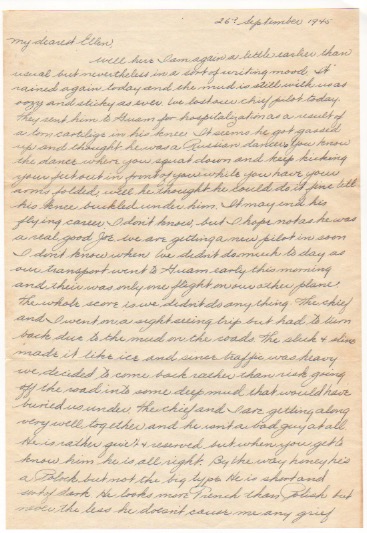 26th September 1945
My dearest Ellen,
Well here I am again a little earlier than
usual but nevertheless in a sort of writing mood. It
rained again today and the mud is still with us as
oozy and sticky as ever. We lost our chief pilot today.
They sent him to Guam for hospitalization as a result of
a torn cartilige in his knee. It seems he got gassed
up and thought he was a Russian dancer. You know
the dance where you squat down and keep kicking
your feet out in front of you while you have your
arms folded, well he thought he could do it fine till
his knee buckled under him. It may end his
flying career, I don't know, but I hope not as he was
a real good Joe. We are getting a new pilot in soon
I don't know when. We didn't do much to day as
our transport went to Guam early this morning
and their was only one flight on our other plane.
The whole score is we didn't do any thing. The chief
and I went on a sight seeing trip but had to turn
back due to the mud on the roads. The slick & slime
made it like ice and since traffic was heavy
we decided to come back rather than risk going
off the road into some deep mud that would have
buried us under. The chief and I are getting along
very well together and he isnt a bad guy at all
He is rather quiet & reserved but when you get to
know him he is all right. By the way honey he's
a Polock but not the big type. He is short and
sorty dark. He looks more French than Polish but
none the less he doesn't cause me any grief